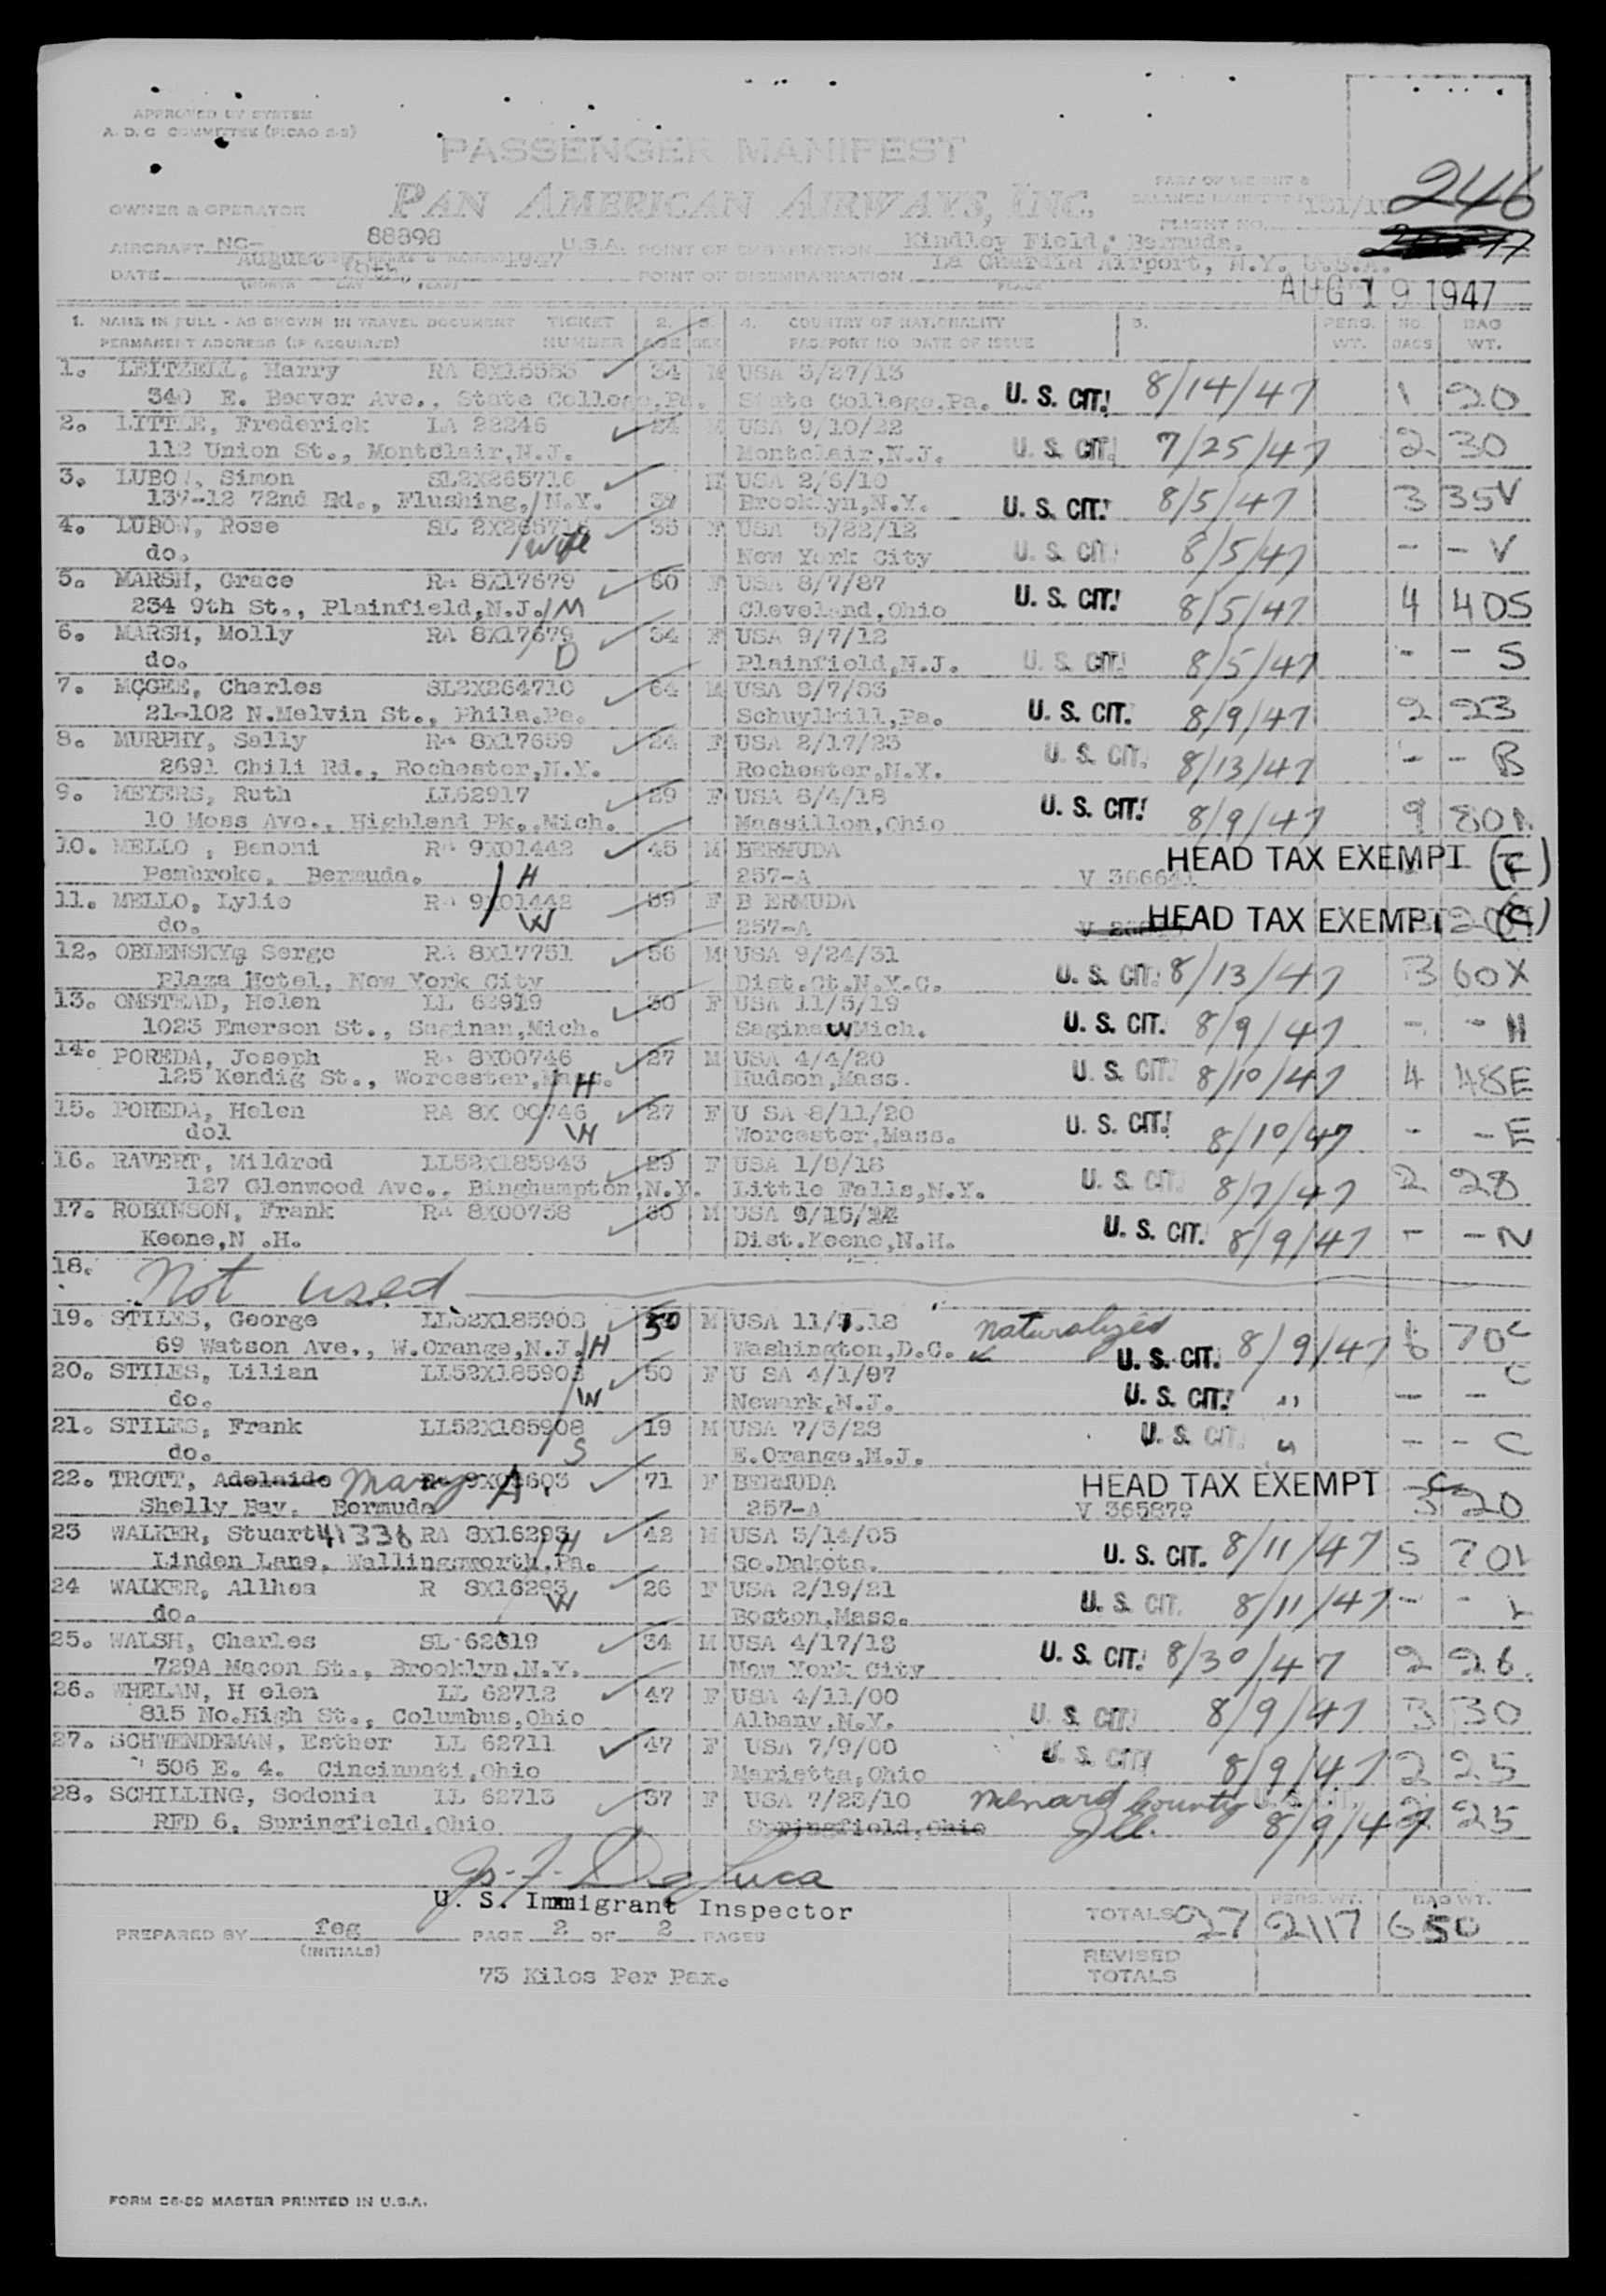 APPROVED BY SYSTEM
A.D.C COMMITTEE (PICAO 2-2)
PASSENGER MANIFEST
PAN AMERICAN AIRWAYS, INC.
PART OF WEIGHT &
BALANCE MANIFEST 131/1
246
OWNER & OPERATOR
FLIGHT NO.
AIRCRAFT NC- 88898 U.S.A. POINT OF EMBARKATION Kindley Field, Bermuda.
DATE August 19th, 1947 POINT OF DISEMBARKATION La Guardia Airport, N.Y. U.S.A.
(MONTH DAY YEAR) PLACE
AUG 19 1947
1. NAME IN FULL - AS SHOWN IN TRAVEL DOCUMENT TICKET 2. 3. 4. COUNTRY OF NATIONALITY 5. PERS. NO. BAG
PERMANENT ADDRESS (IF REQUIRED) NUMBER AGE SEX PASSPORT NO DATE OF ISSUE WT. BAGS WT.
1. LEITZELL, Harry RA 8X16553 34 M USA 5/27/13
340 E. Beaver Ave., State College,Pa. State College,Pa. U. S. CIT. 8/14/47 1 20
2. LITTLE, Frederick LA 22246 24 M USA 9/10/22
112 Union St., Montclair,N.J. Montclair,N.J. U. S. CIT. 7/25/47 2 30
3. LUBOW, Simon SL2X265716 M USA 2/6/10
137-12 72nd Rd., Flushing, N.Y. 37 Brooklyn,N.Y. U. S. CIT. 8/5/47 3 35V
4. LUBOW, Rose SL 2X265716 35 F USA 5/22/12
do. /wife New York City U. S. CIT. 8/5/47 - - V
5. MARSH, Grace RA 8X17679 60 F USA 8/7/87
234 9th St., Plainfield,N.J./M Cleveland,Ohio U. S. CIT. 8/5/47 4 40S
6. MARSH, Molly RA 8X17679 34 F USA 9/7/12
do. /D Plainfield,N.J. U. S. CIT. 8/5/47 - - S
7. MCGEE, Charles SL2X264710 64 M USA 8/7/83
21-102 N.Melvin St., Phila.Pa. Schuylkill,Pa. U. S. CIT. 8/9/47 2 23
8. MURPHY, Sally RA 8X17659 24 F USA 2/17/23
2691 Chili Rd., Rochester,N.Y. Rochester,N.Y. U. S. CIT. 8/13/47 - - B
9. MEYERS, Ruth LL62917 29 F USA 8/4/18
10 Moss Ave., Highland Pk.,Mich. Massillon,Ohio U. S. CIT. 8/9/47 9 80
10. MELLO , Benoni RA 9X01442 45 M BERMUDA HEAD TAX EXEMPT (F)
Pembroke, Bermuda. /H 257-A V 366641
11. MELLO, Lylie RA 9X01442 39 F B ERMUDA HEAD TAX EXEMPT
do. W 257-A V
12. OBLENSKY, Serge RA 8X17751 56 M USA 9/24/31
Plaza Hotel, New York City Dist.Ct.N.Y.C. U. S. CIT. 8/13/47 3 60X
13. OMSTEAD, Helen LL 62919 30 F USA 11/5/19
1023 Emerson St., Saginan,Mich. Saginaw Mich. U. S. CIT. 8/9/47 - - H
14. POREDA, Joseph RA 8X00746 27 M USA 4/4/20
125 Kendig St., Worcester,Mass. /H Hudson,Mass. U. S. CIT. 8/10/47 4 48E
15. POREDA, Helen RA 8X 00746 27 F U SA 8/11/20
dol /W Worcester,Mass. U. S. CIT. 8/10/47 - - E
16. RAVERT, Mildred LL52X185943 29 F USA 1/8/18
127 Glenwood Ave., Binghampton,N.Y. Little Falls,N.Y. U. S. CIT. 8/7/47 2 28
17. ROBINSON, Frank RA 8X00758 30 M USA 9/16/
Keene,N .H. Dist.Keene,N.H. U. S. CIT. 8/9/47 - - N
18. Not used
19. STILES, George LL52X185908 50 M USA 11/7.18 naturalized
69 Watson Ave., W.Orange,N.J./H Washington,D.C. U. S. CIT. 8/9/47 6 70C
20. STILES, Lilian LL52X185908 50 F U SA 4/1/97
do. /W Newark,N.J. U. S. CIT. " - - C
21. STILES, Frank LL52X185908 19 M USA 7/3/28
do. /S E.Orange,N.J. U. S. CIT. " - - C
22. TROTT, Adelaide Mary A. 71 F BERMUDA HEAD TAX EXEMPT
Shelly Bay, Bermuda 257-A V 365879 3 20
23 WALKER, Stuart 41336 RA 8X16293 42 M USA 5/14/05
Linden Lane, Wallingsworth,Pa. /H So.Dakota. U. S. CIT. 8/11/47 5 70L
24 WALKER, Allhea R 8X16293 26 F USA 2/19/21
do. /W Boston,Mass. U. S. CIT. 8/11/47 - - L
25. WALSH, Charles SL-62619 34 M USA 4/17/13
729A Macon St., Brooklyn,N.Y. New York City U. S. CIT. 8/30/47 2 26
26. WHELAN, H elen LL 62712 47 F USA 4/11/00
815 No.High St., Columbus,Ohio Albany,N.Y. U. S. CIT. 8/9/47 3 30
27. SCHWENDEMAN, Esther LL 62711 47 F USA 7/9/00
506 E. 4. Cincinnati,Ohio Marietta,Ohio U. S. CIT 8/9/47 2 25
28. SCHILLING, Sodonia LL 62713 37 F USA 7/23/10 Menard County
RFD 6, Springfield,Ohio Springfield,Ohio Ill. 8/9/47 2 25
U. S. Immigrant Inspector
PREPARED BY feg PAGE 2 OF 2 PAGES
(INITIALS)
TOTALS 27 PERS. WT. 2117 BAG WT. 650
REVISED
TOTALS
73 Kilos Per Pax.
FORM 26-89 MASTER PRINTED IN U.S.A.